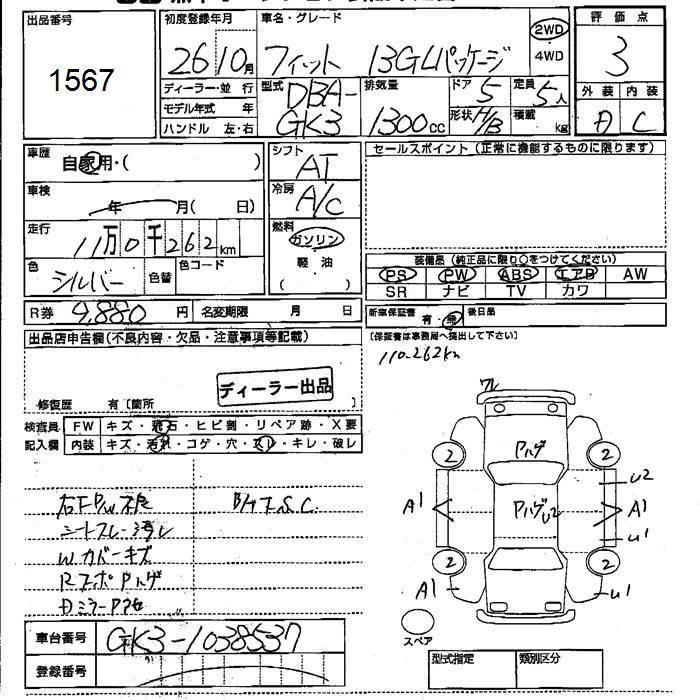 出品番号
1567
初度登録年月
26 10月
車名・グレード
フィット 13GLパッケージ
2WD
・
4WD
評価点
3
外装 内装
D C
ディーラー・並行
モデル年式 年
ハンドル 左・右
型式
DBA-
GK3
排気量
1300cc
ドア 5
形状 H/B
定員 5人
積載 kg
車歴
自家用・( )
車検
年 月( 日)
走行
11万0千262km
色
シルバー
色替
色コード
シフト
AT
冷房
A/C
燃料
ガソリン
・
軽油
( )
セールスポイント(正常に機能するものに限ります)
装備品(純正品に限り○をつけてください)
PS PW ABS エアB AW
SR ナビ TV カワ
R券 9,880円 名変期限 月 日
新車保証書 有・無 後日品
(保証書は事務局へ提出して下さい)
110-262km
出品店申告欄(不良内容・欠品・注意事項等記載)
ディーラー出品
修復歴 有〔箇所 〕
検査員
記入欄
FW キズ・飛石・ヒビ割・リペア跡・X要
内装 キズ・汚れ・コゲ・穴・スレ・キレ・破レ
右FPW不良 B/H I.S.C.
シートスレー汚レ
W.カバーキズ
RスポPハゲ
ワレ
Pハゲ
PハゲU2
2 2
2 2
A1 A1
U2
U1
A1 U1
スペア
車台番号 GK3-1038537
登録番号
型式指定 類別区分